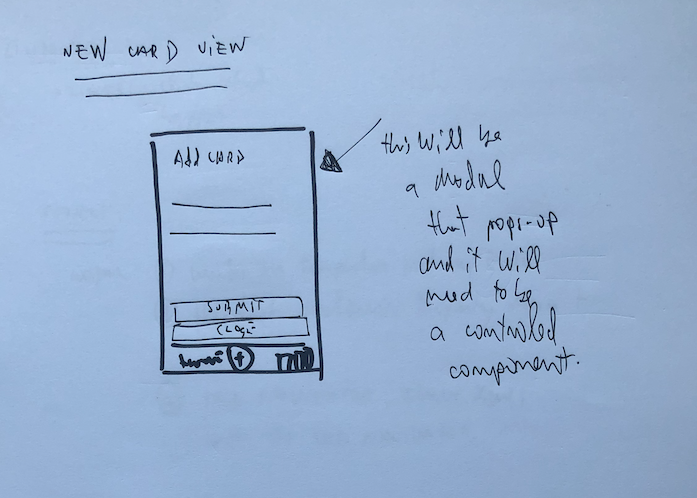 NEW CARD VIEW
Add CARD
SUBMIT
CLOSE
+
this will be
a modal
that pops-up
and it will
need to be
a controled
component.